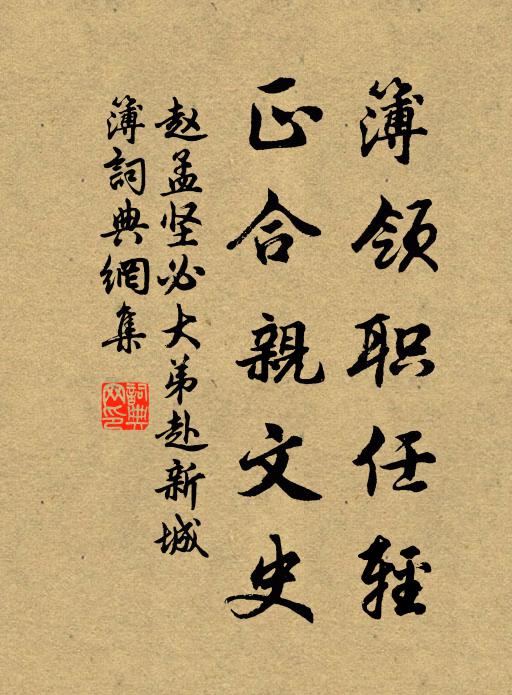 簿领职任輕
正合親文史
赵孟坚必大弟赴新城
簿詞典網集
詞典網印